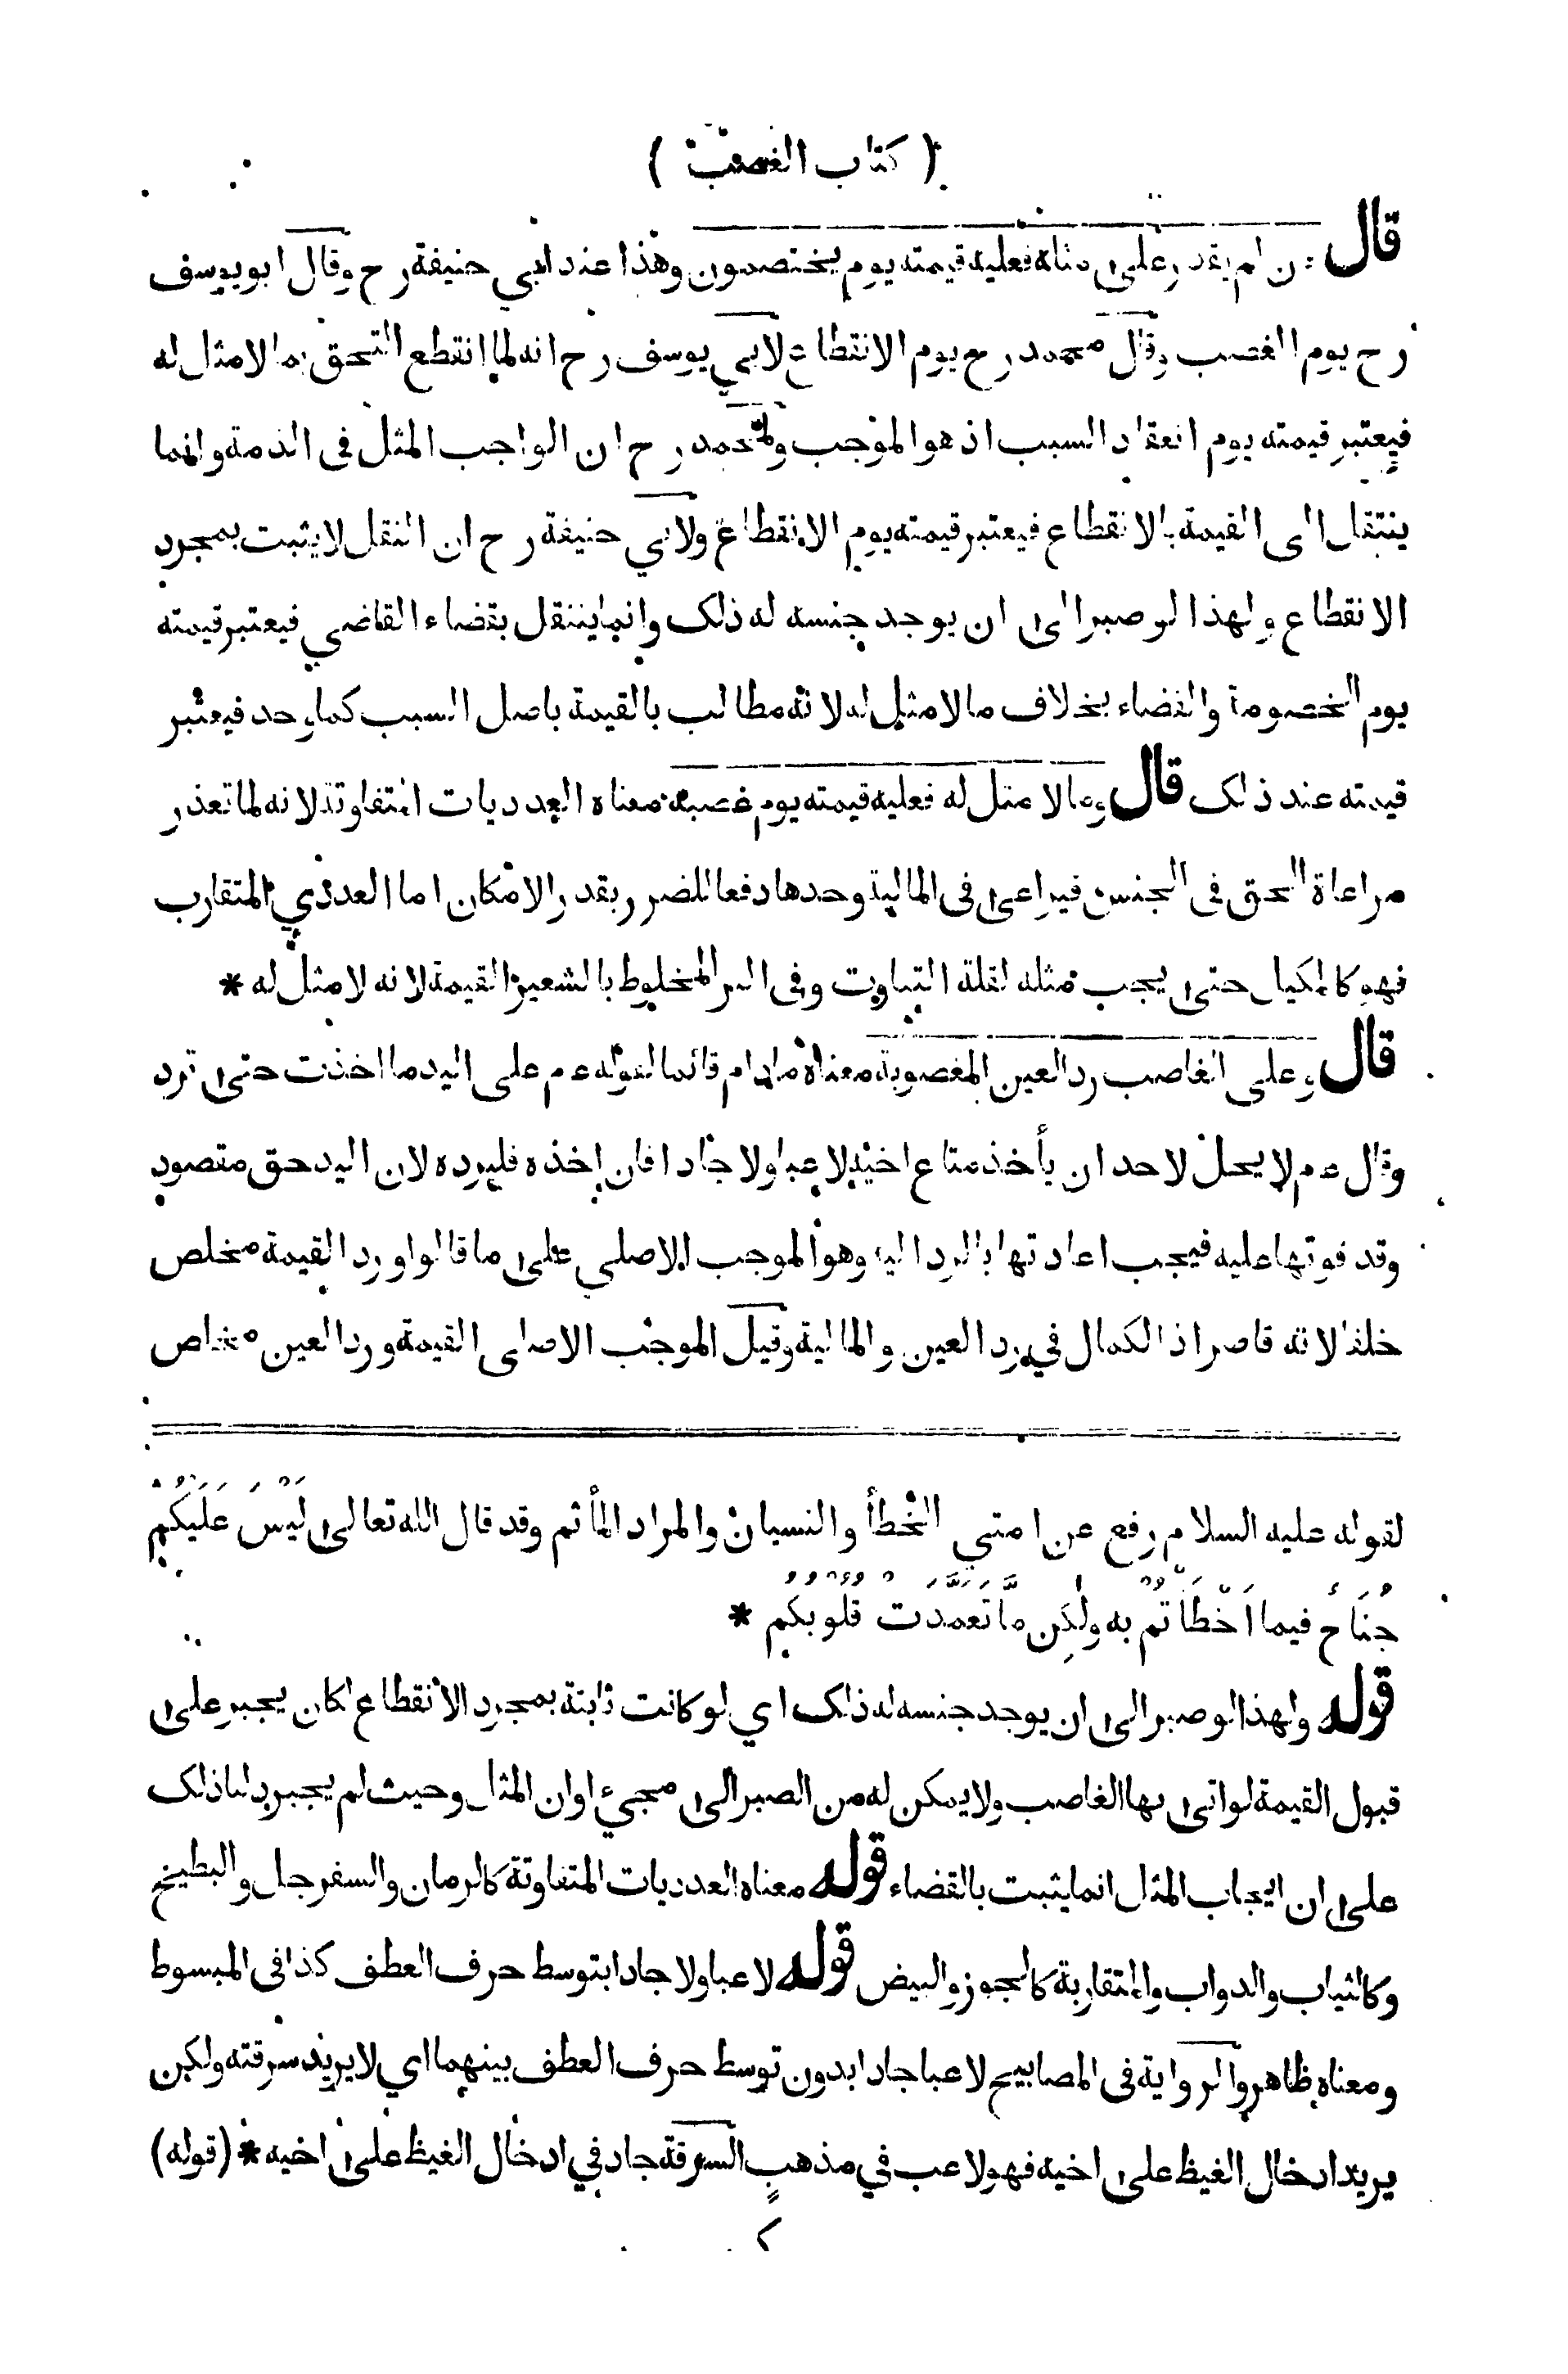 ( كتاب الغصب )
قال فان لم يقدر على مثله فعليه قيمته يوم يختصمون وهذا عند ابي حنيفة رح وقال ابو يوسف
رح يوم الغصب وقال محمد رح يوم الانقطاع لابي يوسف رح انه لما انقطع التحق بما لا مثل له
فيعتبر قيمته يوم انعقاد السبب اذ هو الموجب ولمحمد رح ان الواجب المثل فى الذمة وانما
ينتقل الى القيمة بالانقطاع فيعتبر قيمته يوم الانقطاع ولابي حنيفة رح ان النقل لا يثبت بمجرد
الانقطاع ولهذا لو صبر الى ان يوجد جنسه له ذلك وانما ينتقل بقضاء القاضي فيعتبر قيمته
يوم الخصومة والقضاء بخلاف ما لا مثل له لانه مطالب بالقيمة باصل السبب كما وجد فيعتبر
قيمته عند ذلك قال وما لا مثل له فعليه قيمته يوم غصبه معناه العدديات المتفاوتة لانه لما تعذر
مراعاة الحق فى الجنس فيراعى فى المالية وحدها دفعا للضرر بقدر الامكان اما العددي المتقارب
فهو كالمكيل حتى يجب مثله لقلة التفاوت وفى البر المخلوط بالشعير القيمة لانه لا مثل له *
قال وعلى الغاصب رد العين المغصوبة معناه ما دام قائما لقوله عم على اليد ما اخذت حتى ترد
وقال عم لا يحل لاحد ان يأخذ متاع اخيه لاعبا ولا جادا فان اخذه فليرده لان اليد حق مقصود
وقد فوتها عليه فيجب اعادتها بالرد اليه وهو الموجب الاصلي على ما قالوا ورد القيمة مخلص
خلفا لانه قاصر اذ الكمال في رد العين والمالية وقيل الموجب الاصلى القيمة ورد العين مخلص
لقوله عليه السلام رفع عن امتي الخطأ والنسيان والمراد المأثم وقد قال الله تعالى لَيْسَ عَلَيْكُمْ
جُنَاحٌ فيما اَخْطَأْتُمْ به ولٰكِن مَّا تَعَمَّدَتْ قُلُوبُكُمْ *
قوله ولهذا لو صبر الى ان يوجد جنسه له ذلك اي لو كانت ثابتة بمجرد الانقطاع لكان يجبر على
قبول القيمة لو اتى بها الغاصب ولا يمكن له من الصبر الى مجيئ اوان المثل وحيث لم يجبر دلنا ذلك
على ان ايجاب المثل انما يثبت بالقضاء قوله معناه العدديات المتفاوتة كالرمان والسفرجل والبطيخ
وكالثياب والدواب والمتقاربة كالجوز والبيض قوله لاعبا ولا جادا بتوسط حرف العطف كذا فى المبسوط
ومعناه ظاهر والرواية فى المصابيح لاعبا جادا بدون توسط حرف العطف بينهما اي لا يريد سرقته ولكن
يريد ادخال الغيظ على اخيه فهو لاعب في مذهب السرقة جاد في ادخال الغيظ على اخيه * (قوله)